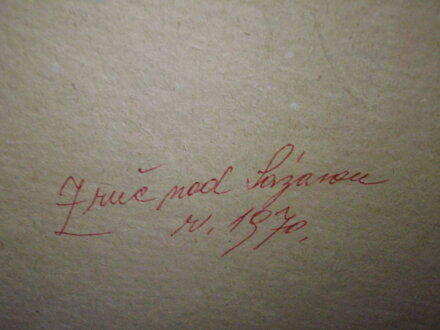 Zruč nad Sázavou
r. 1970.